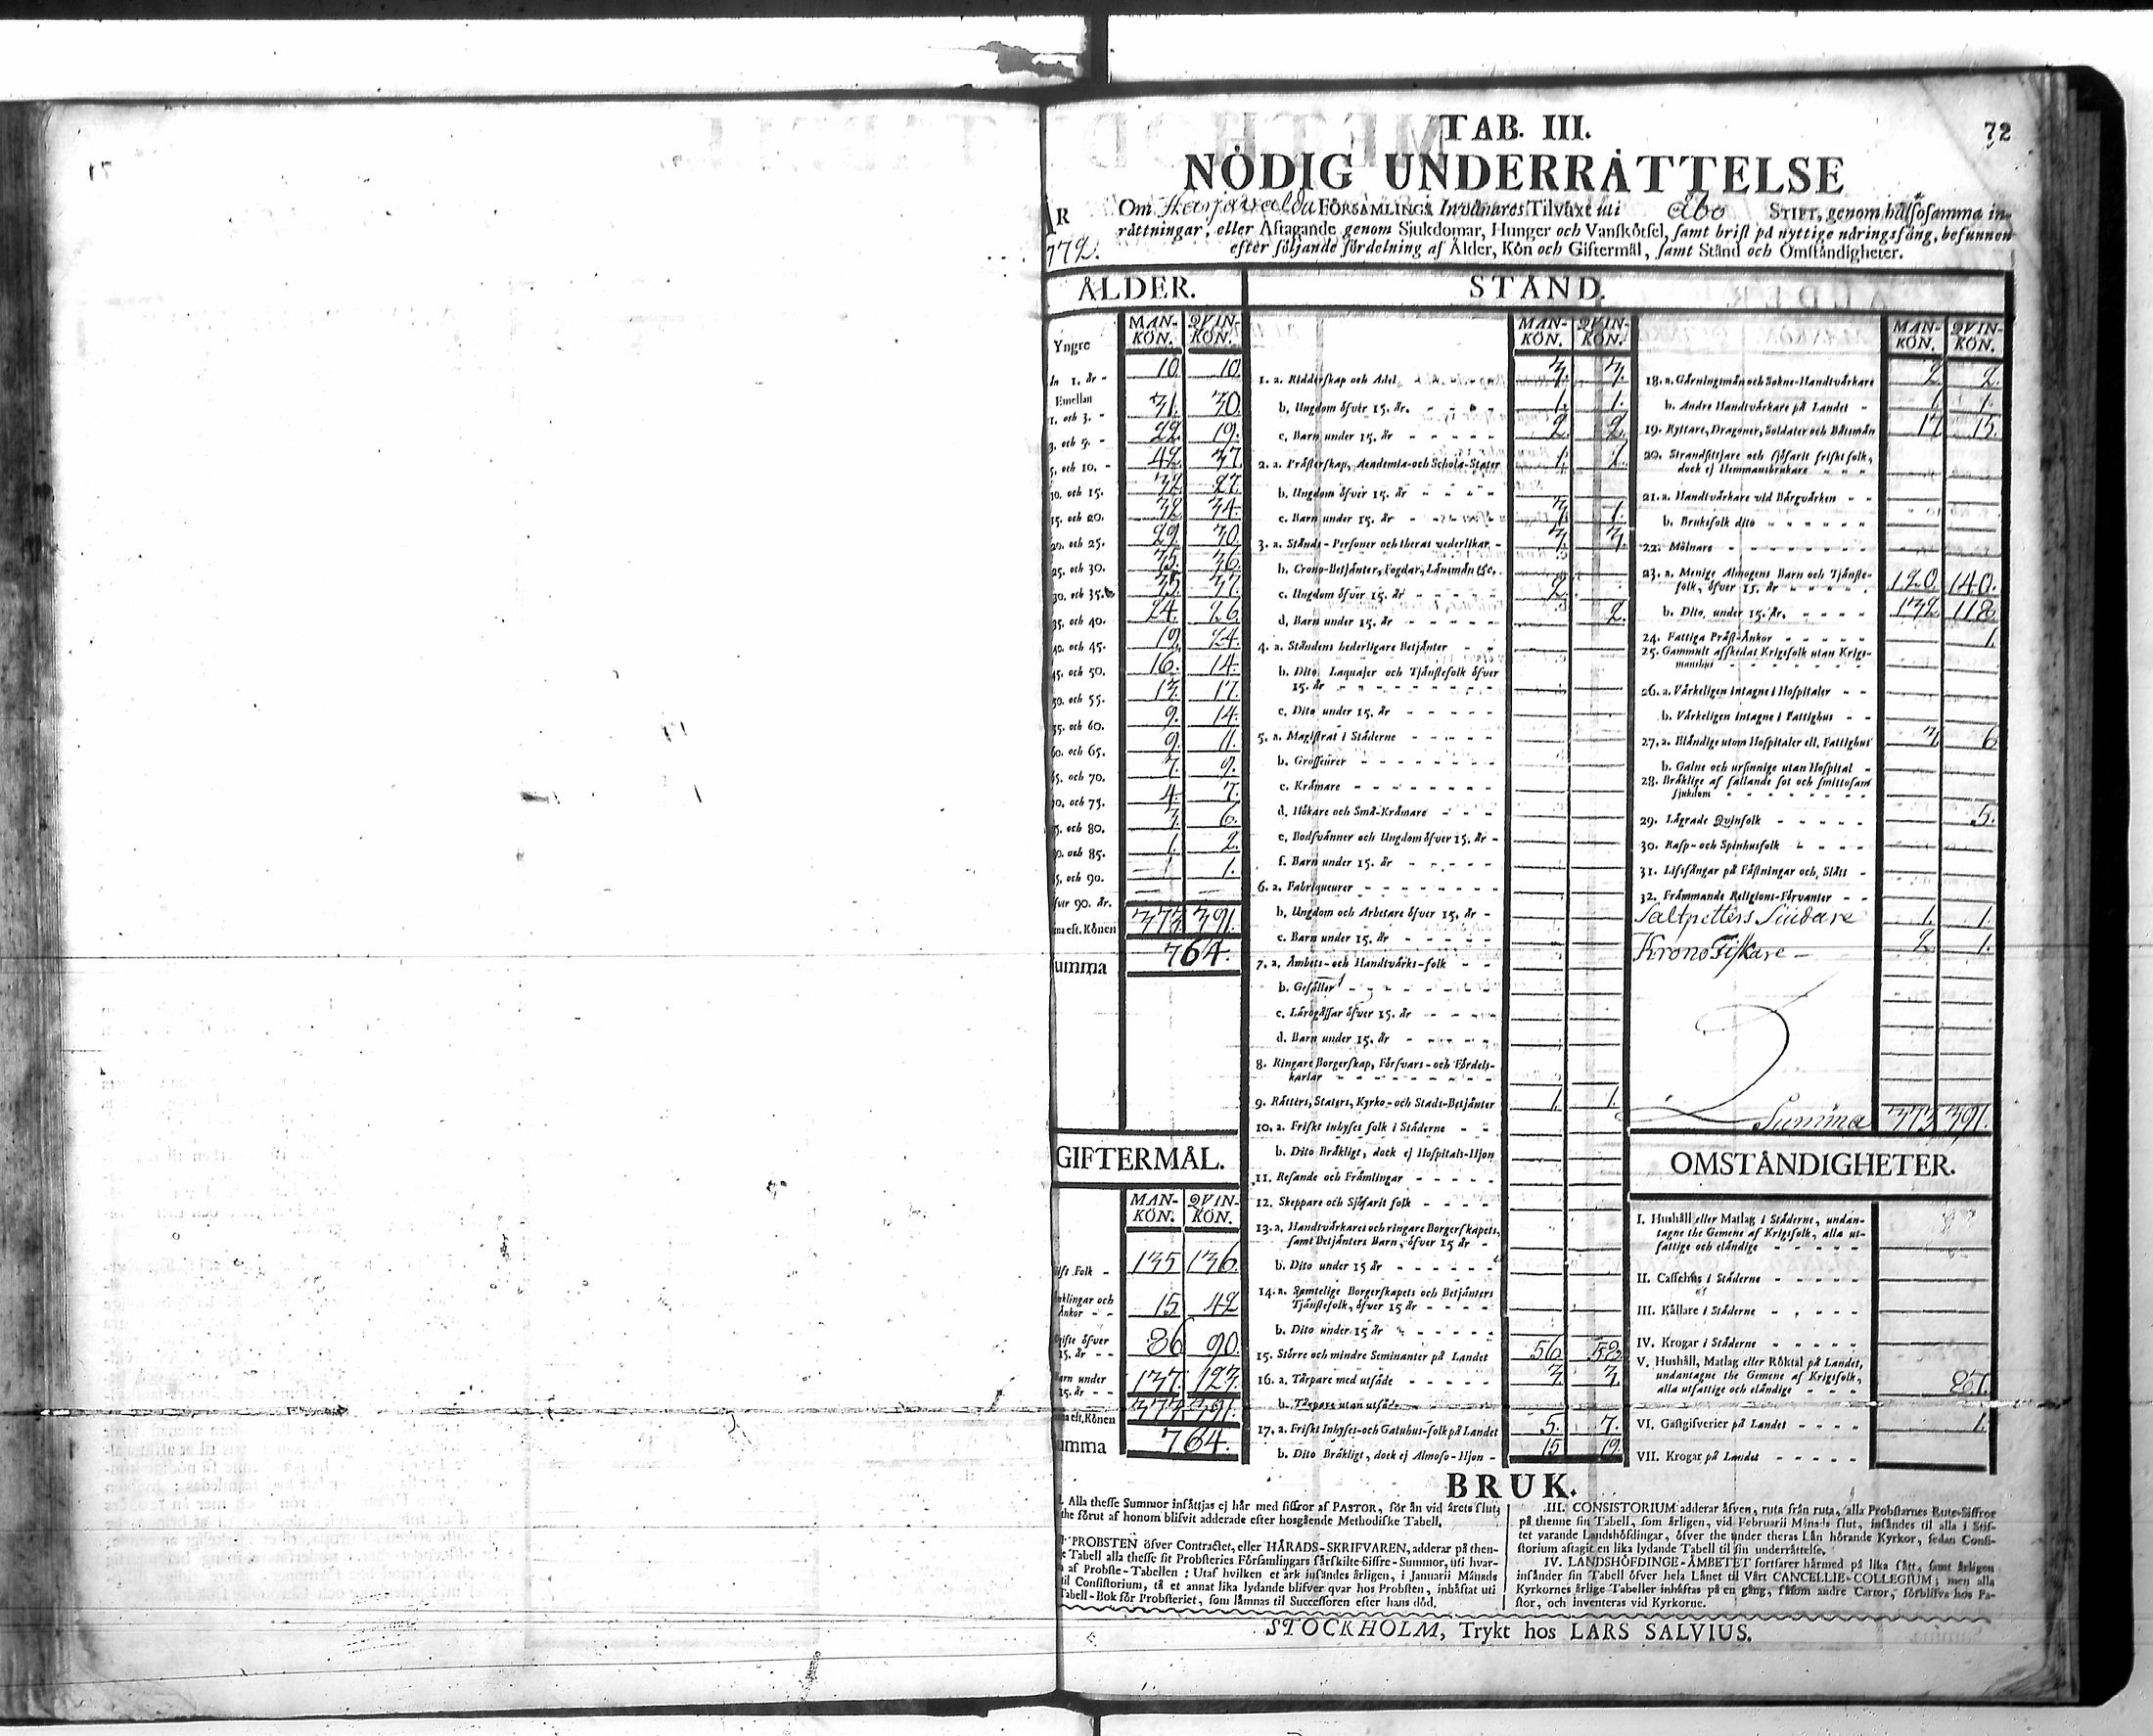 71
72
TAB. III.
NÖDIG UNDERRÄTTELSE
ÅR
772.
Om Harjavalda FÖRSAMLINGS Invånares Tilväxt uti Åbo STIFT, genom hälsosamma in-
rättningar, eller Aftagande genom Sjukdomar, Hunger och Vanskötsel, samt brist på nyttige näringsfång, befunnen
efter följande fördelning af Ålder, Kön och Giftermål, samt Stånd och Omständigheter.
ÅLDER.
MAN-KÖN. QVIN-KÖN.
Yngre
än 1. år - 10. 10.
Emellan
1. och 3. - 31. 30.
3. och 5. - 22. 19.
5. och 10. - 42. 37.
10. och 15. 32. 27.
15. och 20. 32. 34.
20. och 25. 29. 30.
25. och 30. 35. 36.
30. och 35. 35. 37.
35. och 40. 24. 26.
40. och 45. 19. 24.
45. och 50. 16. 14.
50. och 55. 13. 17.
55. och 60. 9. 14.
60. och 65. 9. 11.
65. och 70. 7. 9.
70. och 75. 4. 7.
75. och 80. 3. 6.
80. och 85. 1. 2.
85. och 90. 1.
öfver 90. år. — —
Summa eft. Könen 373. 391.
Summa 764.
GIFTERMÅL.
MAN-KÖN. QVIN-KÖN.
Gift Folk - 135 136.
Enklingar och
Änkor - - 15 42
Ogifte öfver
15. år - - 86 90.
Barn under
15. år - - 137. 123.
Summa eft. Könen 373 391.
Summa 764.
STÅND.
MAN-KÖN. QVIN-KÖN.
1. a. Ridderskap och Adel 3. 3.
b. Ungdom öfver 15. år. 1. 1.
c. Barn under 15. år 2. 2.
2. a. Prästerskap, Academia-och Schola-Stater 1. 1.
b. Ungdom öfver 15. år
c. Barn under 15. år 3. 1.
3. a. Stånds-Personer och theras vederlikar 3. 3.
b. Crono-Betjänter, Fogdar, Länsmän &c.
c. Ungdom öfver 15. år 2.
d. Barn under 15. år 2.
4. a. Ståndens hederligare Betjänter
b. Dito, Laquajer och Tjänstefolk öfver
15. år
c. Dito under 15. år
5. a. Magistrat i Städerne
b. Grosseurer
c. Krämare
d. Hökare och Små-Krämare
e. Bodsvänner och Ungdom öfver 15. år
f. Barn under 15. år
6. a. Fabriqueurer
b. Ungdom och Arbetare öfver 15. år
c. Barn under 15. år
7. a. Ämbets-och Handtvärks-folk
b. Gesäller
c. Lärogåssar öfver 15. år
d. Barn under 15. år
8. Ringare Borgerskap, Försvars-och Fördels-
karlar
9. Rätters, Staters, Kyrko-och Stads-Betjänter 1. 1.
10. a. Friskt inhyses folk i Städerne
b. Dito Bräkligt, dock ej Hospitals-Hjon
11. Resande och Främlingar
12. Skeppare och Sjöfarit folk
13. a. Handtvärkares och ringare Borgerskapets,
samt Betjänters Barn, öfver 15 år
b. Dito under 15 år
14. a. Samtelige Borgerskapets och Betjänters
Tjänstefolk, öfver 15 år
b. Dito under 15 år
15. Större och mindre Heminanter på Landet 56 58
16. a. Tårpare med utsäde 3. 3.
b. Tårpare utan utsäde
17. a. Friskt Inhyses-och Gatuhus-folk på Landet 5. 7.
b. Dito Bräkligt, dock ej Almoso-Hjon 15 19.
MAN-KÖN. QVIN-KÖN.
18. a. Gärningsmän och Sokne-Handtvärkare 2 2.
b. Andre Handtvärkare på Landet 1. 1.
19. Ryttare, Dragoner, Soldater och Båtsmän 17 15.
20. Strandsittjare och sjöfarit friskt folk,
dock ej Hemmansbrukare
21. a. Handtvärkare vid Bärgvärken
b. Bruksfolk dito
22. Mölnare
23. a. Menige Almogens Barn och Tjänste-
folk, öfver 15. år 120. 140.
b. Dito, under 15. år. 132. 118.
24. Fattiga Präst-Änkor 1.
25. Gammalt afskedat Krigsfolk utan Krigs-
manshus
26. a. Värkeligen intagne i Hospitaler
b. Värkeligen intagne i Fattighus
27. a. Eländige utom Hospitaler ell. Fattighus 3 6
b. Galne och ursinnige utan Hospital
28. Bräklige af fallande sot och smittosam
sjukdom
29. Lägrade Qvinfolk 5.
30. Rasp-och Spinhusfolk
31. Lifsfångar på Fästningar och Slått
32. Främmande Religions-Förvanter
Saltpetters Siudare 1. 1.
Krono Fiskare — 2. 1.
Summa 373 391.
OMSTÄNDIGHETER.
I. Hushåll eller Matlag i Städerne, undan-
tagne the Gemene af Krigsfolk, alla ut-
fattige och eländige
II. Caffehus i Städerne
III. Källare i Städerne
IV. Krogar i Städerne
V. Hushåll, Matlag eller Röktal på Landet,
undantagne the Gemene af Krigsfolk,
alla utfattige och eländige 87.
VI. Gästgifverier på Landet 1.
VII. Krogar på Landet
BRUK.
I. Alla thesse Summor insättjas ej här med siffror af PASTOR, för än vid årets slut,
the förut af honom blifvit adderade efter hosgående Methodiske Tabell.
II. PROBSTEN öfver Contractet, eller HÄRADS-SKRIFVAREN, adderar på then-
ne Tabell alla thesse sit Probsteries Församlingars särskilte Siffre-Summor, uti hvar-
a af Probste-Tabellen: Utaf hvilken et ark insändes årligen, i Januarii Månads
til Consistorium, tå et annat lika lydande blifver qvar hos Probsten, inhäftat uti
Tabell-Bok för Probsteriet, som lämnas til Successoren efter hans död.
III. CONSISTORIUM adderar äfven, ruta från ruta, alla Probstarnes Rute-Siffror
på thenne sin Tabell, som årligen, vid Februarii Månads slut, insändes til alla i Stif-
tet varande Landshöfdingar, öfver the under theras Län hörande Kyrkor, sedan Consi-
storium aftagit en lika lydande Tabell til sin underrättelse.
IV. LANDSHÖFDINGE-ÄMBETET fortfarer härmed på lika sätt, samt årligen
insänder sin Tabell öfver hela Länet til Vårt CANCELLIE-COLLEGIUM; men alla
Kyrkornes årlige Tabeller inhäftas på en gång, såsom andre Cartor, förblifva hos Pa-
stor, och inventeras vid Kyrkorne.
STOCKHOLM, Trykt hos LARS SALVIUS.